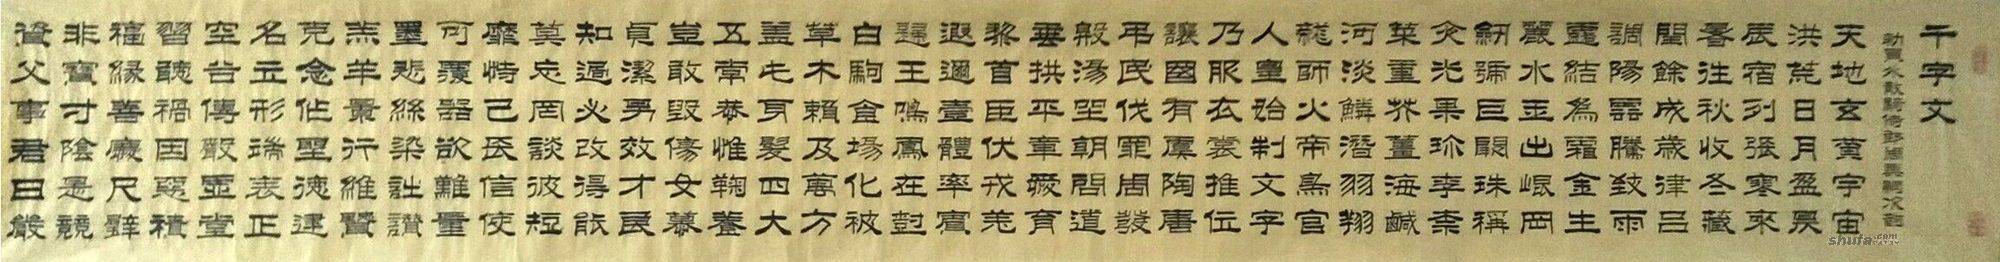 千字文
勅員外散騎侍郎周興嗣次韻
天地玄黃宇宙
洪荒日月盈昃
辰宿列張寒來
暑往秋收冬藏
閏餘成歲律呂
調陽雲騰致雨
露結為霜金生
麗水玉出崐岡
劒號巨闕珠稱
夜光果珍李柰
菜重芥薑海鹹
河淡鱗潛羽翔
龍師火帝鳥官
人皇始制文字
乃服衣裳推位
讓國有虞陶唐
弔民伐罪周發
殷湯坐朝問道
垂拱平章愛育
黎首臣伏戎羌
遐邇壹體率賓
歸王鳴鳳在尌
白駒食場化被
草木賴及萬方
蓋此身髮四大
五常恭惟鞠養
豈敢毀傷女慕
貞潔男效才良
知過必改得能
莫忘罔談彼短
靡恃己長信使
可覆器欲難量
墨悲絲染詩讚
羔羊景行維賢
克念作聖德建
名立形端表正
空谷傳聲虛堂
習聽禍因惡積
福緣善慶尺璧
非寶寸陰是競
資父事君曰嚴
shufa.com